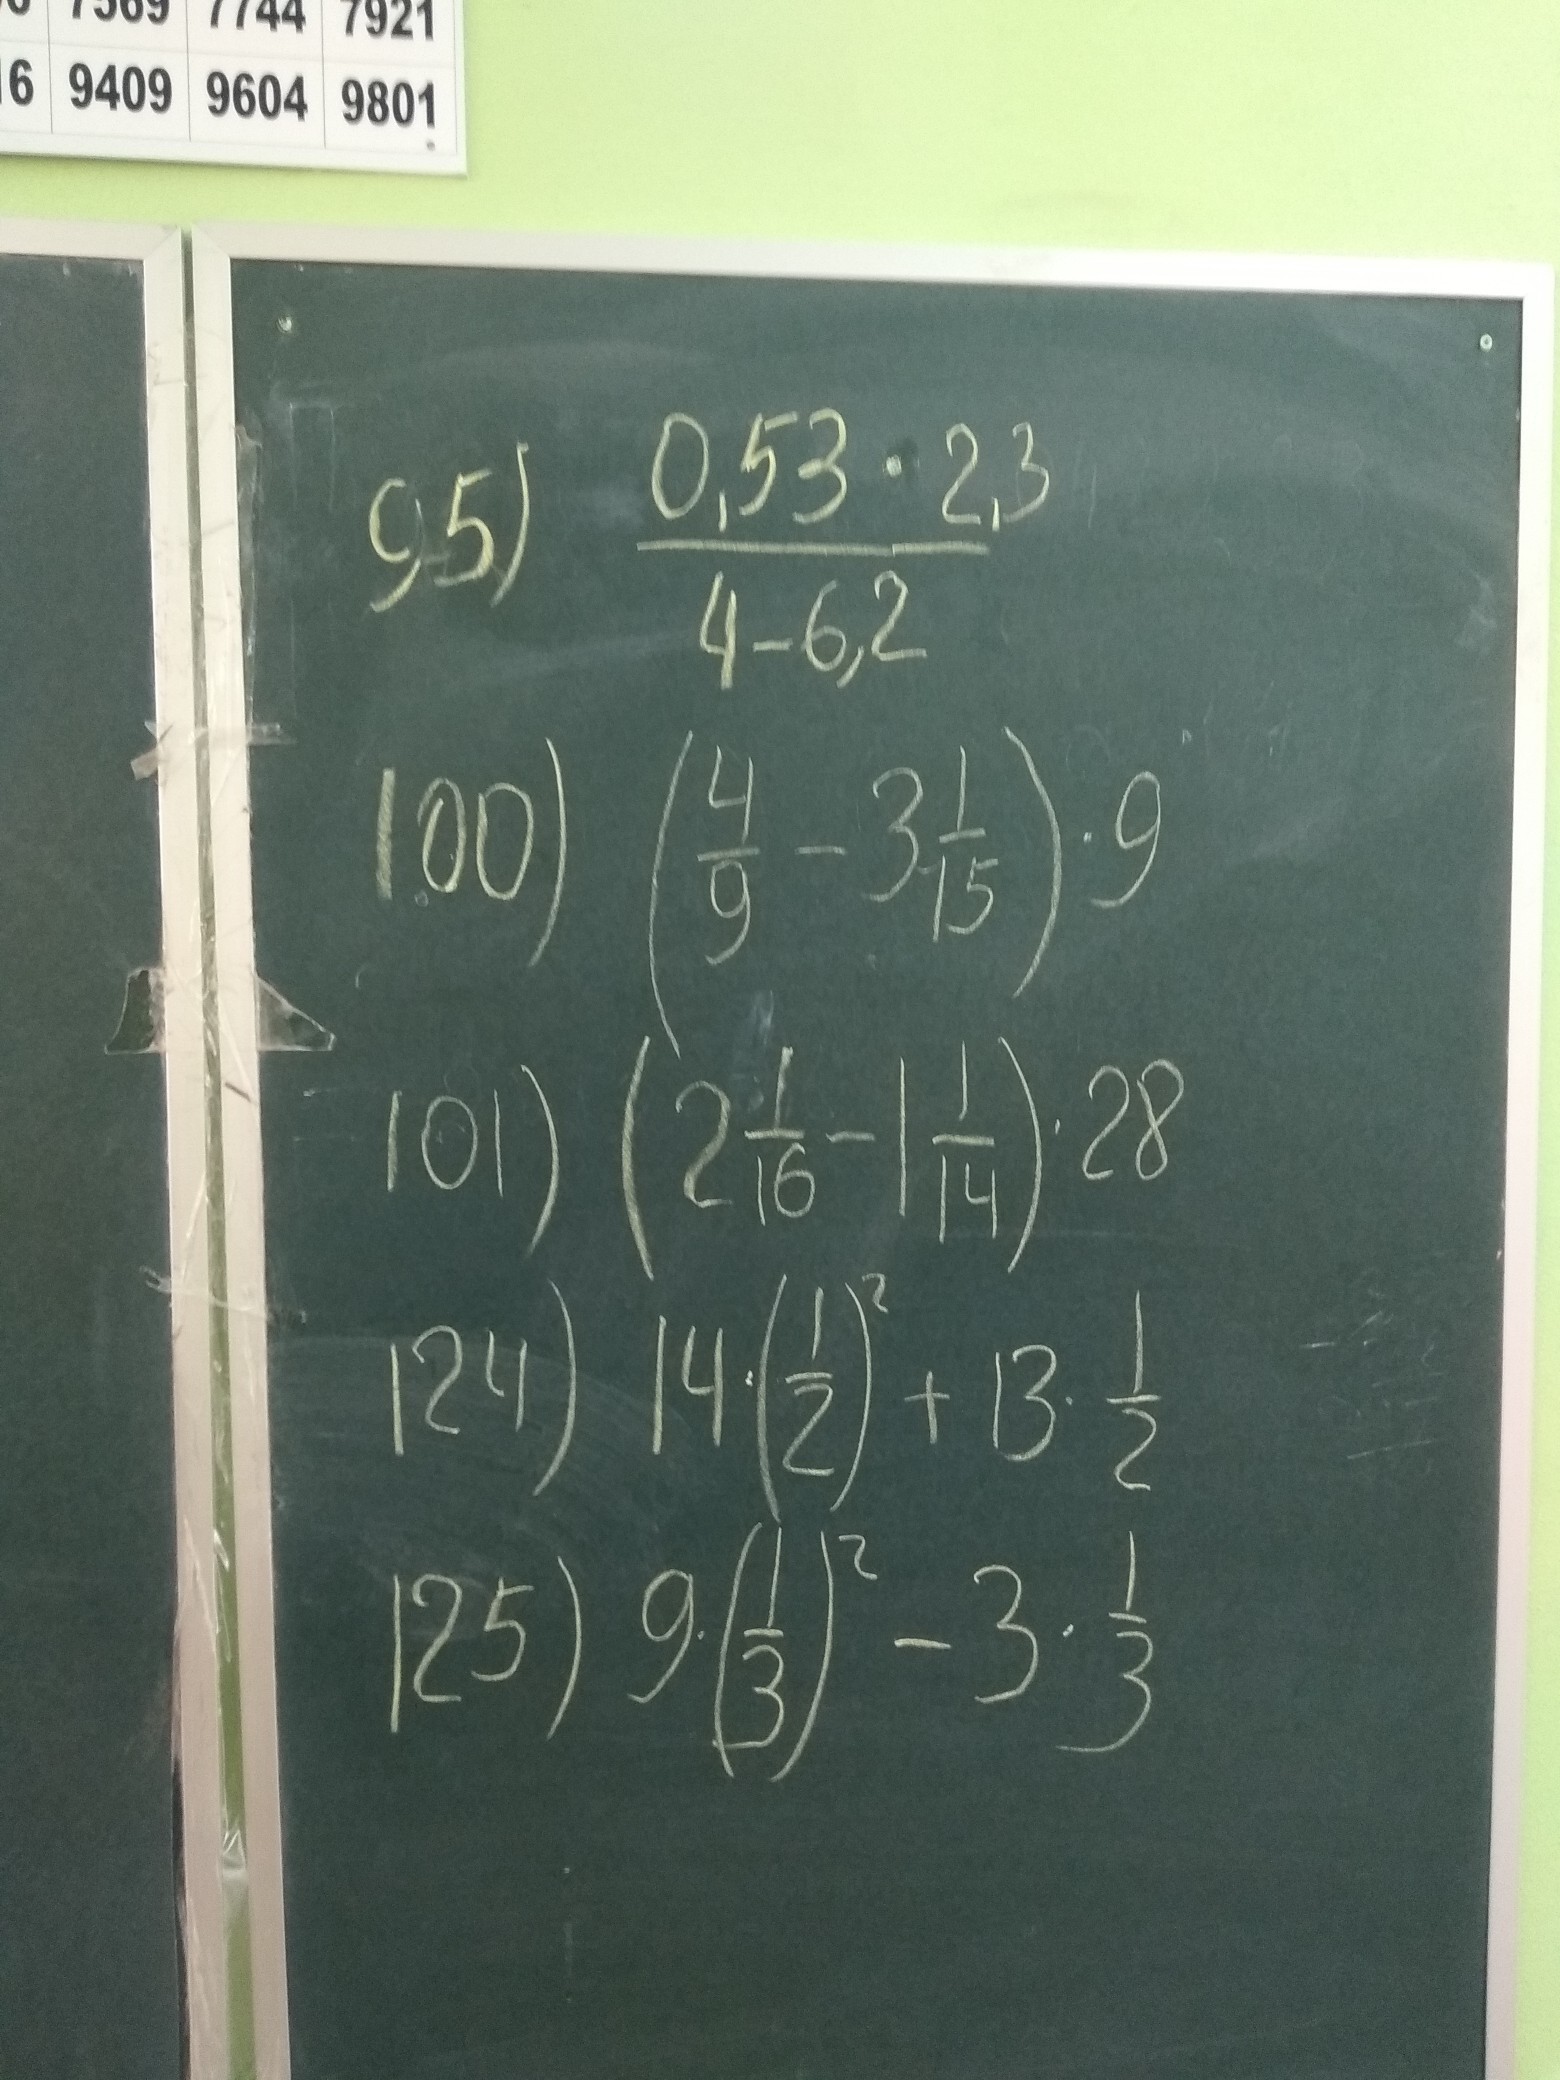 7569 7744 7921
16 9409 9604 9801
95) 0,53 · 2,3
4 - 6,2
100) (4/9 - 3 1/15) · 9
101) (2 1/16 - 1 1/14) · 28
124) 14 · (1/2)² + 13 · 1/2
125) 9 · (1/3)² - 3 · 1/3